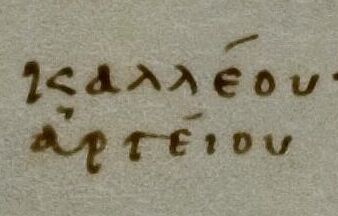 καλλέου·
ἀρτείου